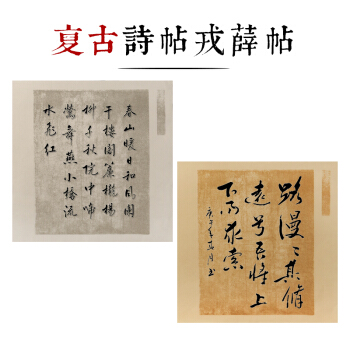 复古詩帖戎薛帖
春山暖日和風闌
干樓閣簾櫳楊
柳千秋院中啼
鶯舞燕小橋流
水飛紅
路漫〻其脩
遠兮吾將上
下而求索
庚子年月書